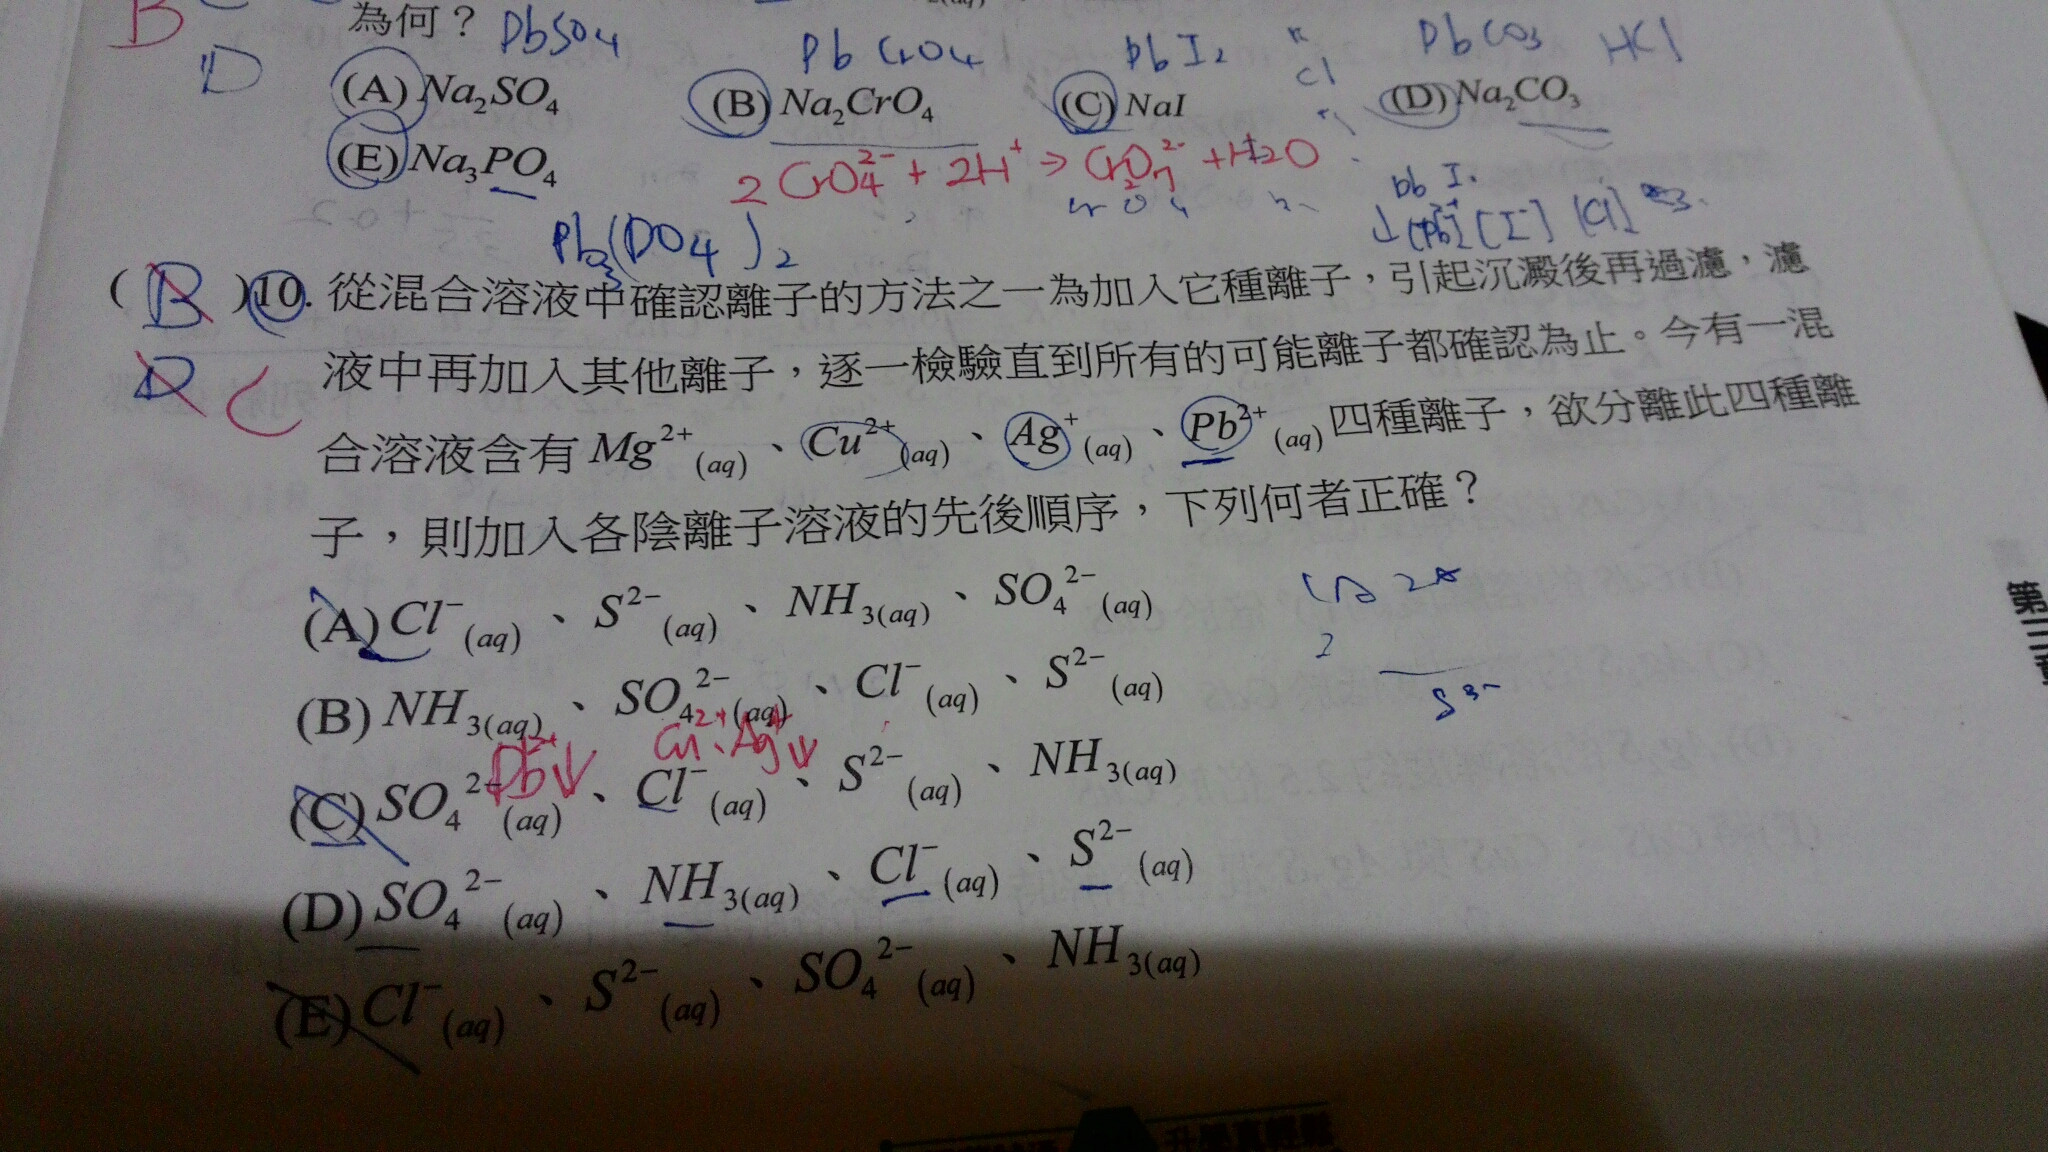 B
為何? PbSO4 PbCrO4 PbI2 PbCO3 HCl
D
(A) Na₂SO₄ (B) Na₂CrO₄ (C) NaI (D) Na₂CO₃
Cl
(E) Na₃PO₄
2CrO₄²⁻ + 2H⁺ → Cr₂O₇²⁻ + H2O
Pb I
Pb₃(PO4)₂ ↓ [Pb²⁺] [I⁻] [Cl]
( B )10. 從混合溶液中確認離子的方法之一為加入它種離子，引起沉澱後再過濾，濾
D C 液中再加入其他離子，逐一檢驗直到所有的可能離子都確認為止。今有一混
合溶液含有 Mg²⁺(aq)、Cu²⁺(aq)、Ag⁺(aq)、Pb²⁺(aq) 四種離子，欲分離此四種離
子，則加入各陰離子溶液的先後順序，下列何者正確？
(A) Cl⁻(aq)、S²⁻(aq)、NH₃(aq)、SO₄²⁻(aq)
(B) NH₃(aq)、SO₄²⁻(aq)、Cl⁻(aq)、S²⁻(aq)
S²⁻
Pb²⁺↓ Cu²⁺、Ag⁺↓
(C) SO₄²⁻(aq)、Cl⁻(aq)、S²⁻(aq)、NH₃(aq)
(D) SO₄²⁻(aq)、NH₃(aq)、Cl⁻(aq)、S²⁻(aq)
(E) Cl⁻(aq)、S²⁻(aq)、SO₄²⁻(aq)、NH₃(aq)
第三章